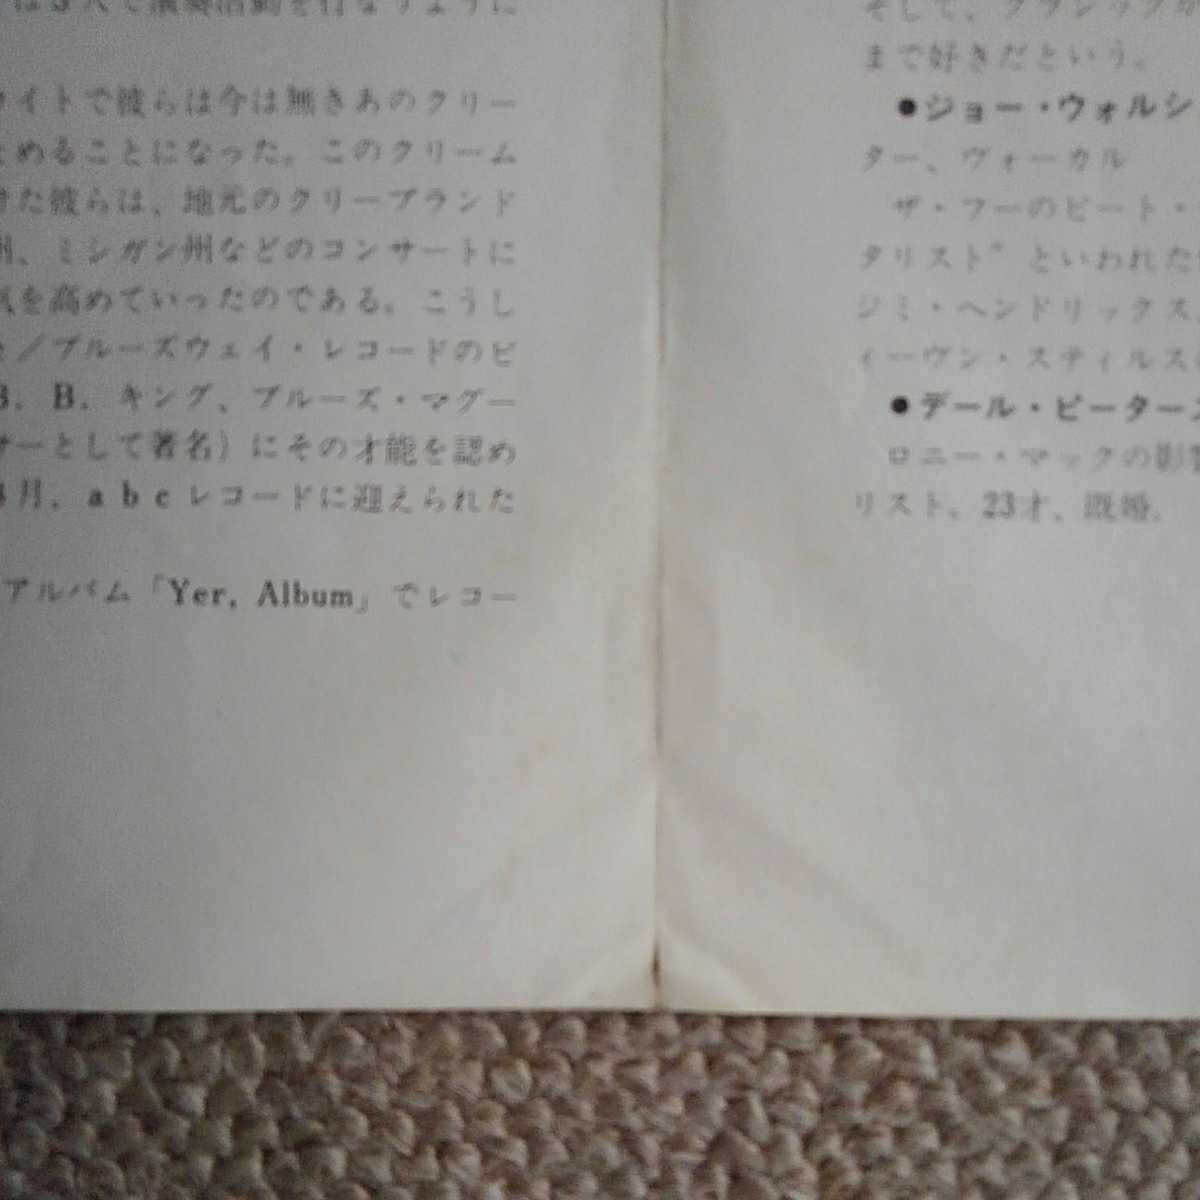 は3人で演奏活動を行なうように
イトで彼らは今は無きあのクリー
とめることになった。このクリーム
けた彼らは、地元のクリーブランド
州、ミシガン州などのコンサートに
気を高めていったのである。こうし
／ブルーズウェイ・レコードのビ
B. B. キング、ブルーズ・マグー
サーとして著名）にその才能を認め
月、abcレコードに迎えられた
アルバム「Yer, Album」でレコー
そして、クラシックか
まで好きだという。
●ジョー・ウォルシ
ター、ヴォーカル
ザ・フーのピート・
タリスト”といわれた
ジミ・ヘンドリックス
ィーヴン・スティルス
●デール・ピーター
ロニー・マックの影響
リスト。23才、既婚。